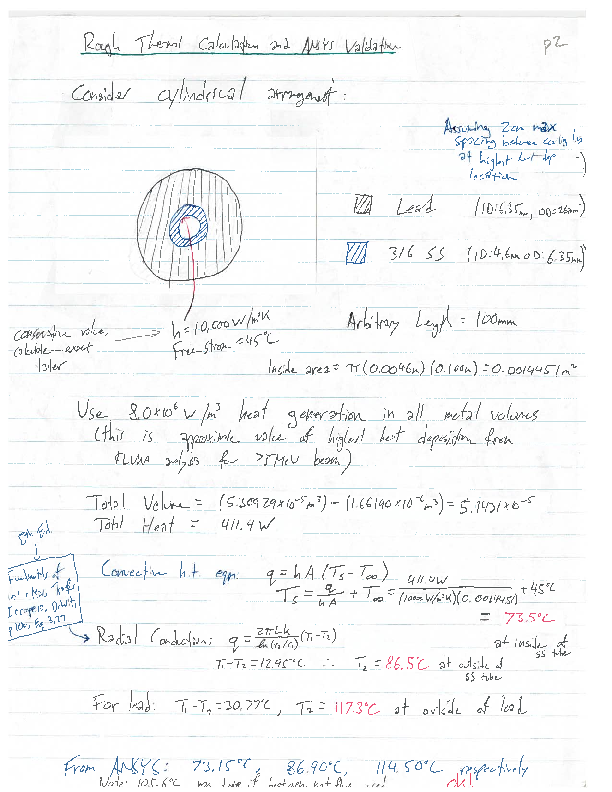 Rough Thermal Calculation and ANSYS Validation
p2
Consider cylindrical arrangement:
Assuming 2cm max
spacing between cooling
at highest heat dep
location
Lead (ID:6.35mm, OD=26mm)
316 SS (ID:4.6mm OD:6.35mm)
conservative value,
calculate exact
later
h=10,000 W/m²K
Free-stream =45°C
Arbitrary Length = 100mm
Inside area = π(0.0046m)(0.100m)=0.001445 m²
Use 8.0×10⁶ W/m³ heat generation in all metal volumes
(this is approximate value of highest heat deposition from
FLUKA analysis for MeV beam)
Total Volume = (5.30929×10⁻⁵m³) - (1.66190×10⁻⁶m³) = 5.1431×10⁻⁵
Total Heat = 411.4 W
Fundamentals of
Heat + Mass Transfer,
Incropera, DeWitt,
Eq 3.27
Convective h.t. eqn: q=hA(Ts-T∞)
Ts = q/hA + T∞ = 411.4W/(10000 W/m²K)(0.001445) +45°C
= 73.5°C
at inside of
SS tube
Radial Conduction: q = 2πLk/ln(r₂/r₁) (T₁-T₂)
T₁-T₂=12.95°C ∴ T₂ = 86.5°C at outside of
SS tube
For lead: T₁-T₂=30.77°C, T₂=117.3°C at outside of lead
From ANSYS: 73.15°C, 86.90°C, 114.50°C respectively
Note: 105.6°C
ok!